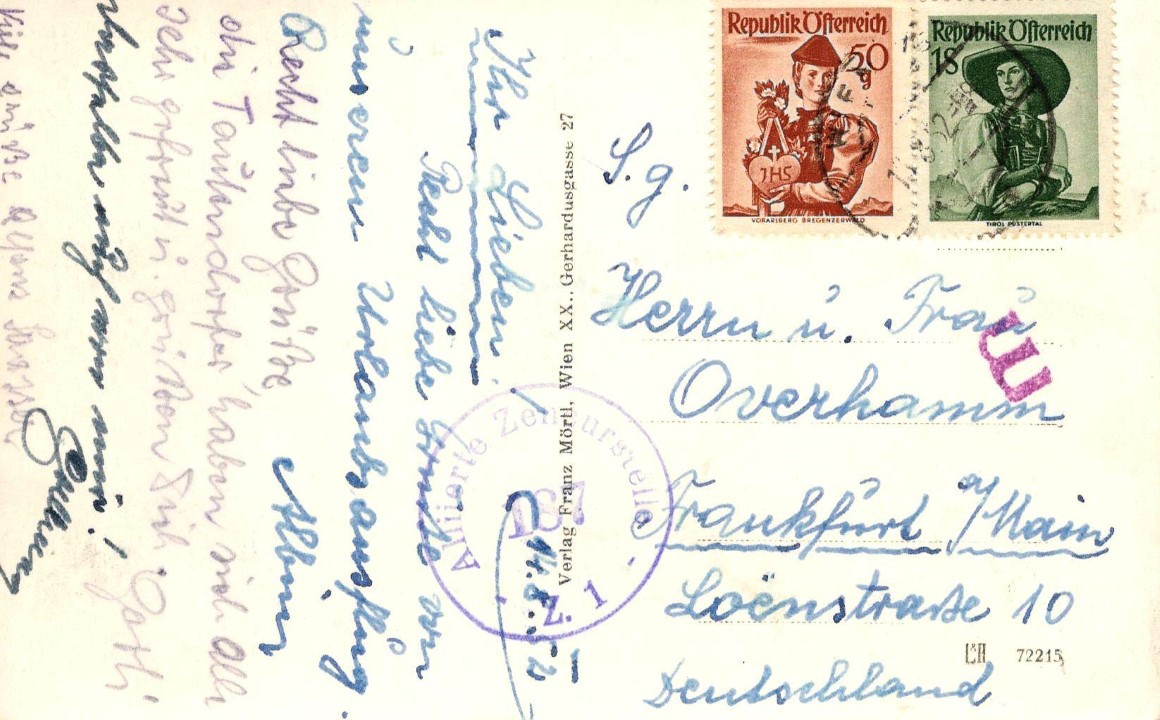 Republik Österreich
50
g
JHS
VORARLBERG BREGENZERWALD
Republik Österreich
1S
TIROL PUSTERTAL
S.g.
Herrn u. Frau
Overhamm
Frankfurt a/Main
Loënstraße 10
Deutschland
E
L&H 72215
Verlag Franz Mörtl, Wien XX., Gerhardusgasse 27
Alliierte Zensurstelle
167
Z. 1
14.8.52
Ihr Lieben!
Recht liebe Grüße von
unserem Urlaubsausflug.
Albin
Recht liebe Grüße,
die haben sich alle
sehr gefreut u. grüßen Dich
Viele süße